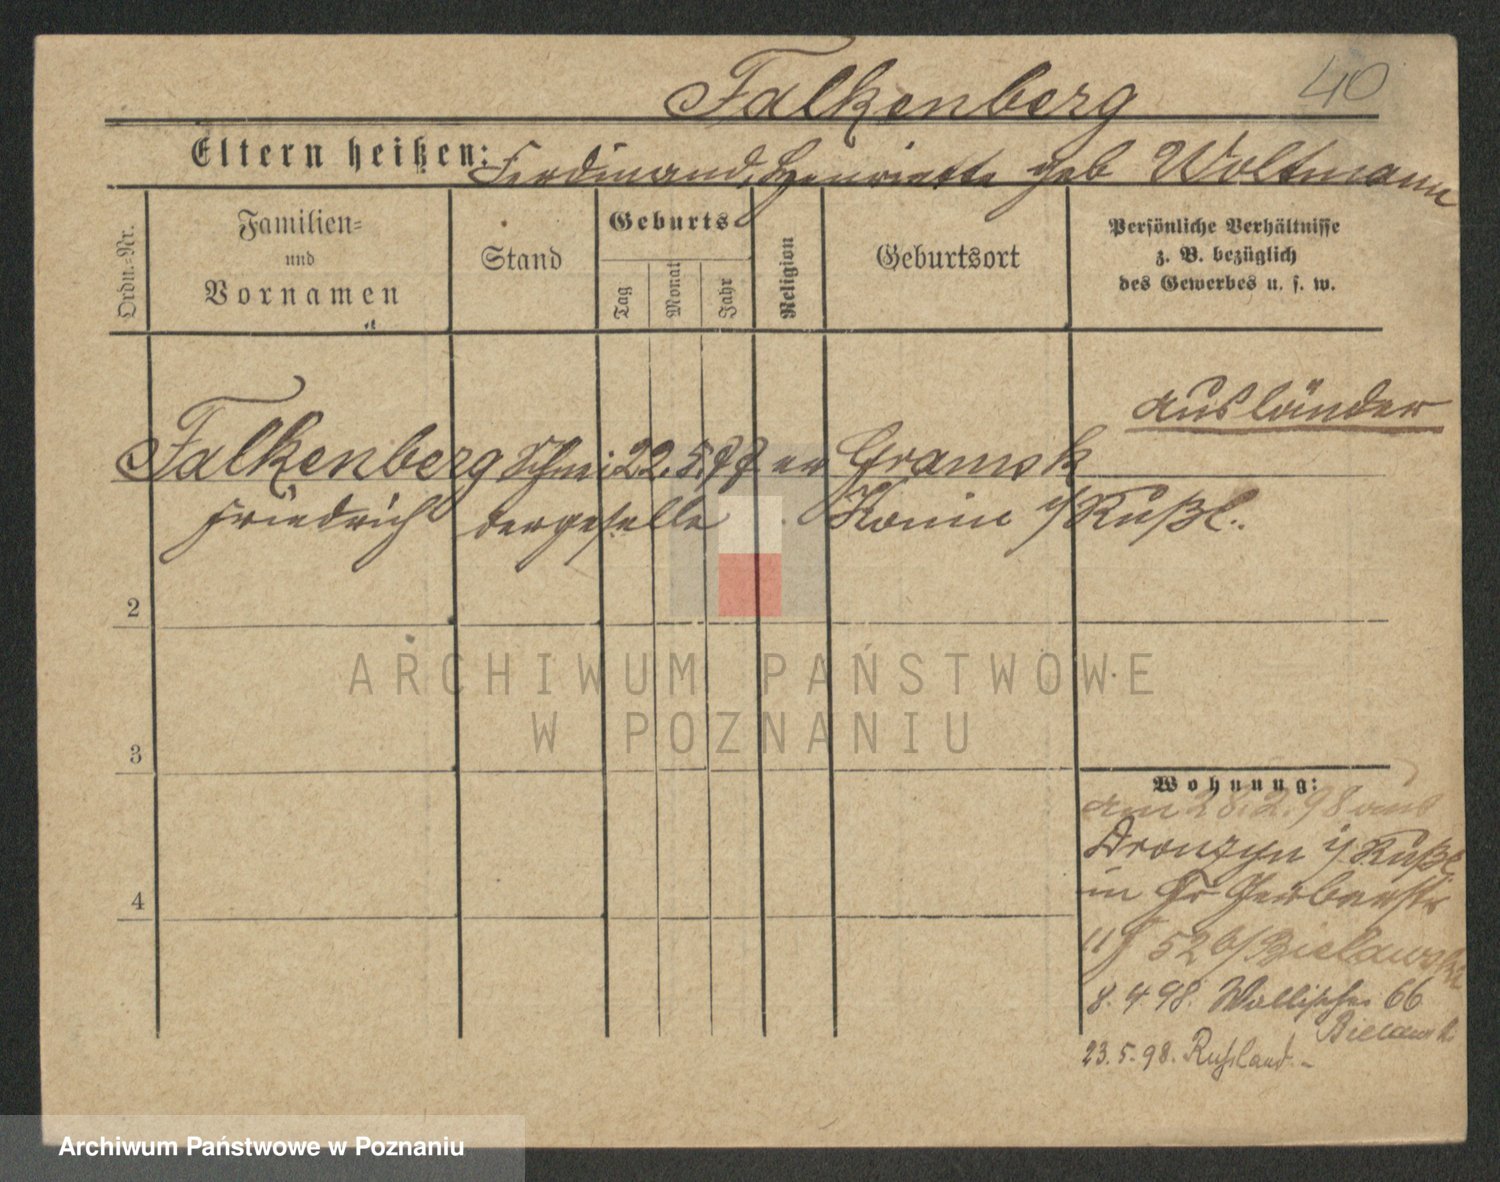 40
Falkenberg
Eltern heißen: Ferdinand, Henriette geb Woltmann
Ordn.-Nr.
Familien-
und
Vornamen
Stand
Geburts-
Tag
Monat
Jahr
Religion
Geburtsort
Persönliche Verhältnisse
z. B. bezüglich
des Gewerbes u. s. w.
Ausländer
Falkenberg Schnei 22. 5. 77 ev Gramsk
Friedrich dergeselle Konin i/Rußl.
2
3
4
Wohnung:
am 28.2.98 aus
i/Rußl
in Gr Gerberstr
52 b/Bielawski
8. 4 98. Wallischei 66
Bielawski
23. 5. 98. Russland.
ARCHIWUM PAŃSTWOWE
W POZNANIU
Archiwum Państwowe w Poznaniu